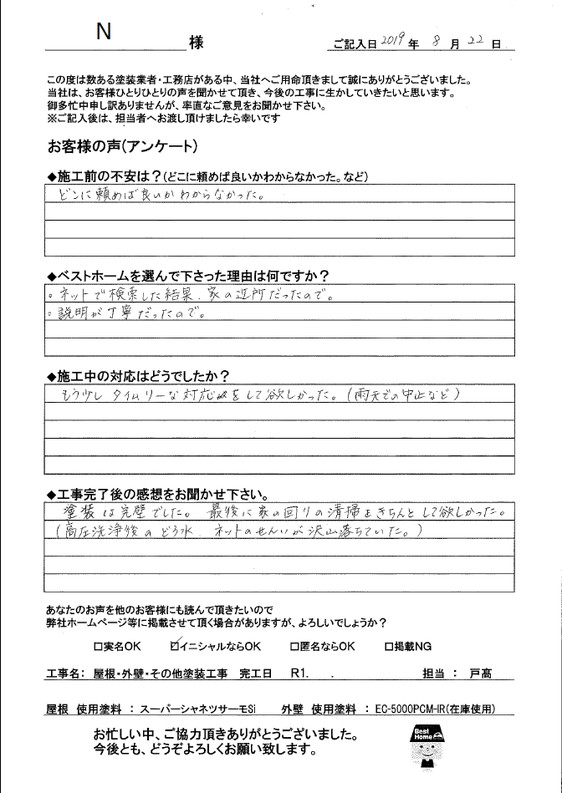 N 様
ご記入日 2019 年 8 月 22 日
この度は数ある塗装業者・工務店がある中、当社へご用命頂きまして誠にありがとうございました。
当社は、お客様ひとりひとりの声を聞かせて頂き、今後の工事に生かしていきたいと思います。
御多忙中申し訳ありませんが、率直なご意見をお聞かせ下さい。
※ご記入後は、担当者へお渡し頂けましたら幸いです
お客様の声(アンケート)
◆施工前の不安は？(どこに頼めば良いかわからなかった。など)
どこに頼めば良いかわからなかった。
◆ベストホームを選んで下さった理由は何ですか？
○ネットで検索した結果、家の近所だったので。
○説明が丁寧だったので。
◆施工中の対応はどうでしたか？
もう少しタイムリーな対応をして欲しかった。(雨天での中止など)
◆工事完了後の感想をお聞かせ下さい。
塗装は完璧でした。最後に家の回りの清掃をきちんとして欲しかった。
(高圧洗浄後のどろ水、ネットのせんいが沢山落ちていた。)
あなたのお声を他のお客様にも読んで頂きたいので
弊社ホームページ等に掲載させて頂く場合がありますが、よろしいでしょうか？
□実名OK ☑イニシャルならOK □匿名ならOK □掲載NG
工事名： 屋根・外壁・その他塗装工事 完工日 R1. . 担当 ： 戸髙
屋根 使用塗料 ： スーパーシャネツサーモSi 外壁 使用塗料 ： EC-5000PCM-IR(在庫使用)
お忙しい中、ご協力頂きありがとうございました。
今後とも、どうぞよろしくお願い致します。
Best Home